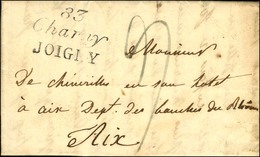 83
Charny
JOIGNY
Monsieur
De chenivilles en son hotel
à aix Dept. des bouches du Rhône
Aix